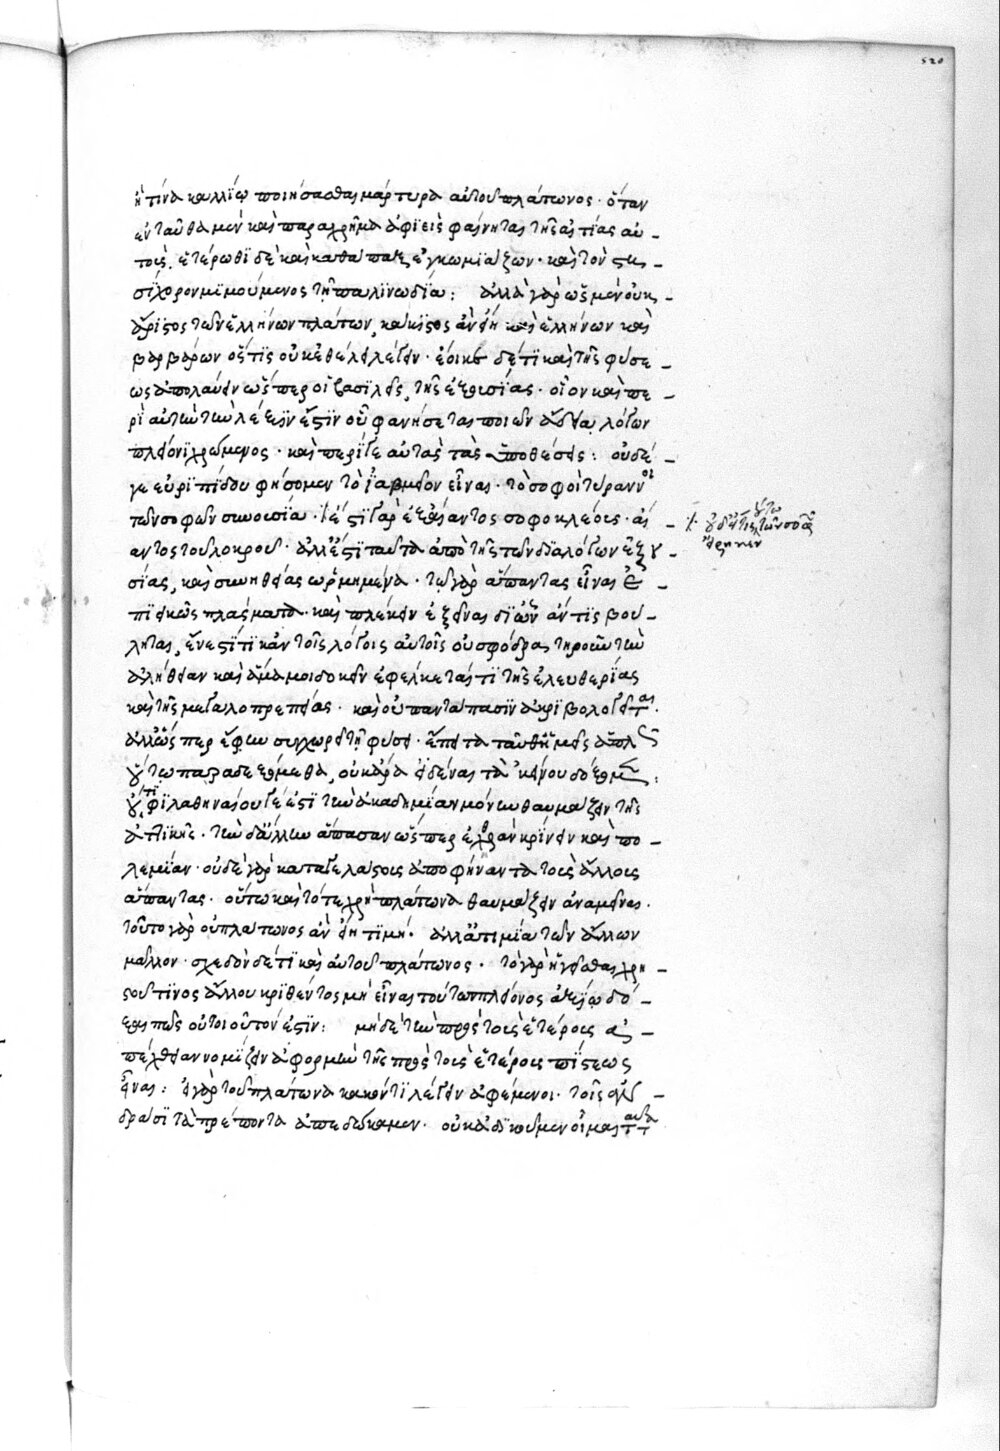 520
ἢ τίνα καλλίω ποιήσασθαι μάρτυρα αὐτοῦ πλάτωνος. ὅταν
ἐνταῦθα μὲν καὶ παραχρῆμα ἀφιεὶς φαίνηται τῆς αἰτίας αὐ-
τοὺς. ἑτέρωθι δὲ καὶ καθάπαξ ἐγκωμιάζων. καὶ τὸν στη-
σίχορον μιμούμενος τῇ παλινωδία: ἀλλὰ γὰρ ὡς μὲν οὐκ
ἄριστος τῶν ἑλλήνων πλάτων, κάκιστος ἂν εἴη καὶ ἑλλήνων καὶ
βαρβάρων ὅστις οὐκ ἐθέλει λέγειν. ἔοικε δέ τι καὶ τῆς φύσε-
ως ἀπολαύειν ὥσπερ οἱ βασιλεῖς, τῆς ἐξουσίας. οἷον καὶ πε-
ρὶ αὐτὴν τὴν λέξιν ἔστιν οὗ φανήσεται ποιῶν ἄδεια λόγων
πλείονι χρώμενος. καὶ περί γε αὐτὰς τὰς ὑποθέσεις: οὐδέ-
γε εὐριπίδου φήσομεν τὸ ἰαμβεῖον εἶναι. τὸ σοφοὶ τύραννοι
τῶν σοφῶν συνουσία. ἔστι γὰρ ἐξ αἴαντος σοφοκλέους. αἴ-
αντος τοῦ λοκροῦ. ἀλλ' ἔστι ταῦτα ἀπὸ τῆς τῶν διαλόγων ἐξου-
σίας, καὶ συνηθείας ὡρμημένα. τῷ γὰρ ἅπαντας εἶναι ἐ-
πιεικῶς πλάσματα. καὶ πλέκειν ἐξεῖναι δι' ὧν ἄν τις βού-
ληται, ἔνεστί τι κἀν τοῖς λόγοις αὐτοῖς οὐ σφόδρα τηροῦν τὴν
ἀλήθειαν καὶ ἅμα μοι δοκεῖν ἐφέλκεταί τι τῆς ἐλευθερίας
καὶ τῆς μεγαλοπρεπείας. καὶ οὐ παντάπασιν ἀκριβολογεῖται.
ἀλλ' ὥσπερ ἔφην συγχωρεῖ τῇ φύσει. ἔπειτα ταῦθ' ἡμεῖς ἁπλῶς
οὕτω παραδεξώμεθα, οὐκ ἄρα εἰδέναι τὰ ἐκείνου δόξομεν:
οὔτι φιλαθηναίου γέ ἐστι τὴν ἀκαδημίαν μόνην θαυμάζειν τῆς
ἀττικῆς. τὴν δ' ἄλλην ἅπασαν ὥσπερ ἐχθρὰν κρίνειν καὶ πο-
λεμίαν. οὐδὲ γὰρ καταγελάστους ἀποφήναντα τοὺς ἄλλους
ἅπαντας. οὕτω καὶ τότε χρὴ πλάτωνα θαυμάζειν ἀναμεῖναι.
τοῦτο γὰρ οὐ πλάτωνος ἂν εἴη τιμή. ἀλλ' ἀτιμία τῶν ἄλλων
μᾶλλον. σχεδὸν δέ τι καὶ αὐτοῦ πλάτωνος. τὸ γὰρ ἡγεῖσθαι χρη-
στοῦ τινος ἄλλου κριθέντος μὴ εἶναι τοῦτον πλείονος ἀξίω δό-
ξαι πῶς οὐ τοιοῦτόν ἐστιν: μηδὲ τὴν πρὸς τοὺς ἑτέρους ἀ-
πέχθειαν νομίζειν ἀφορμὴν τῆς πρὸς τοὺς ἑτέρους πίστεως
εἶναι: εἰ γὰρ τοῦ πλάτωνα κακόν τι λέγειν ἀφέμενοι. τοῖς ἀν-
δράσι τὰ πρέποντα ἀπεδώκαμεν. οὐκ ἀδικοῦμεν οἶμαι ταῦτα